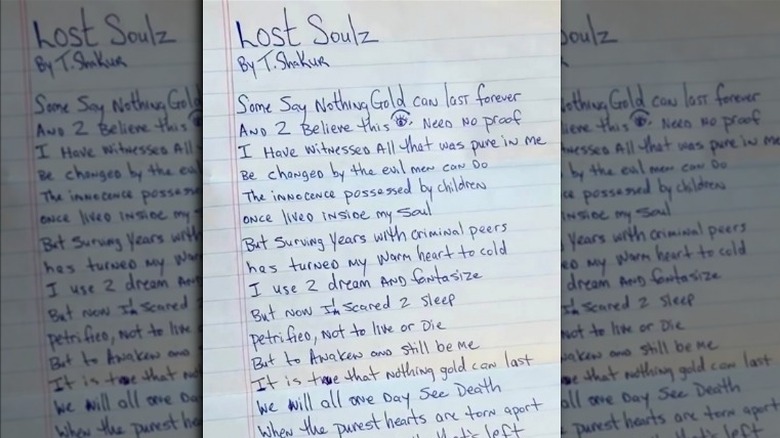 Lost Soulz
By T. Shakur
Some Say Nothing Gold can last forever
AND 2 Believe this 👁 Need No proof
I Have witnessed All that was pure in me
Be changed by the evil men can Do
The innocence possessed by children
once lived inside my soul
But Surving Years with criminal peers
has turned my warm heart to cold
I use 2 dream AND fantasize
But now I'm scared 2 sleep
petrified, not to live or Die
But to Awaken and still be me
It is true that nothing gold can last
We will all one Day See Death
When the purest hearts are torn apart
that's left